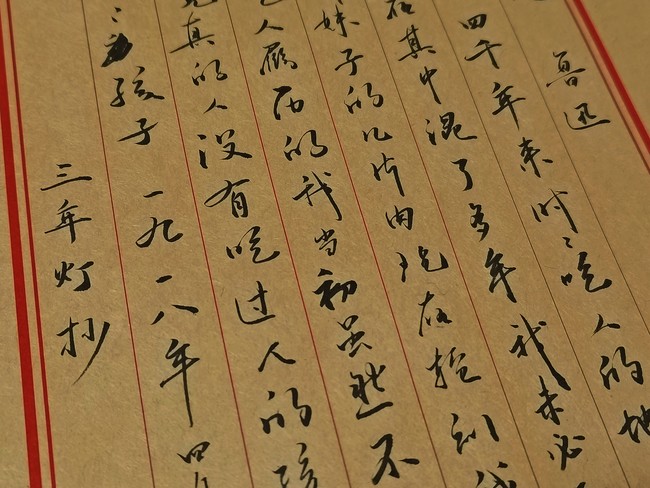 鲁迅
四千年来时々吃人的地
在其中混了多年我未必
妹子的几片肉现在轮到我
人履历的我当初虽然不
真的人没有吃过人的孩
孩子 一九一八年四月
三年灯抄